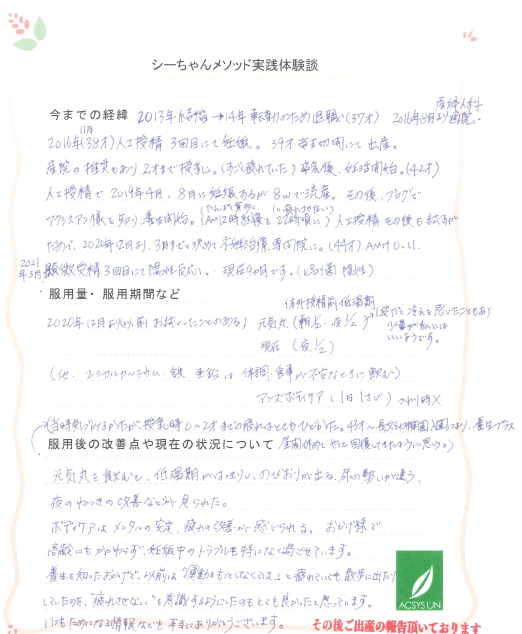 シーちゃんメソッド実践体験談
産婦人科
今までの経緯 2013年結婚→14年転勤のため退職(37才) 2016年8月より通院。
11月
2016年(38才)人工授精 3回目にて妊娠。39才 帝王切開にて出産。
産院の推奨もあり 2才まで授乳。(すごく疲れていた) 卒乳後、妊活開始。(42才)
人工授精で 2019年4月、8月に妊娠するが 8wで流産。その後、ブログで
アクシスアン様を知り 養生開始。 人工授精 その後も試すが
2020年12月より 不妊治療専門院に。(44才) AMH 0.11.
2021年3月
顕微受精 3回目にて陽性反応。現在9ヶ月です。
服用量・服用期間など
体外授精前 低温期
2020年12月より(以前 お試しいただいたことのある) 元気丸 (朝1/2・夜1/2)
現在 (夜1/2)
(他、ユニカルカルシウム・鉄 亜鉛は 体調・食事が不安なときに飲む)
ボディケア (1日1さじ) つわり時×
服用後の改善点や現在の状況について
元気丸を飲むと、低温期がはっきりし、のびおりが出る、尿の勢いが違う、
夜のねつきの改善などが見られた。
ボディケアは メンタルの安定、疲れの改善が感じられる。おかげ様で
高齢にもかかわらず 妊娠中のトラブルも特になく過ごせています。
養生を知ったおかげで、以前は "運動をもっとしなくては"と疲れていても 散歩に出たり
していたのを、"疲れさせない"を意識するようになったのもとても良かったと思っています。
いつもためになる情報なども 本当にありがとうございます。
ACSYS UN
その後ご出産の報告頂いております